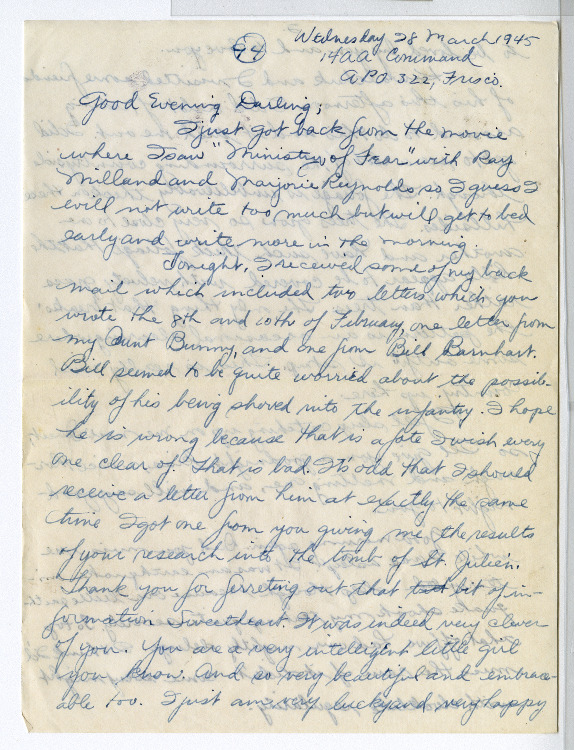 94
Wednesday 28 March 1945
14AA Command
APO 322, Frisco.
Good Evening Darling;
I just got back from the movie
where I saw "Ministry of Fear" with Ray
Milland and Marjorie Reynolds, so I guess I
will not write too much but will get to bed
early and write more in the morning.
Tonight, I received some of my back
mail which included two letters which you
wrote the 8th and 10th of February, one letter from
my Aunt Bunny, and one from Bill Barnhart.
Bill seemed to be quite worried about the possib-
ility of his being shoved into the infantry. I hope
he is wrong because that is a fate I wish every
one clear of. That is bad. It's odd that I should
receive a letter from him at exactly the same
time I got one from you giving me the results
of your research into the tomb of St. Julien.
Thank you for ferreting out that bit of in-
formation Sweetheart. It was indeed very clever
of you. You are a very intelligent little girl
you know. And so very beautiful and embrace-
able too. I just am very lucky and very happy